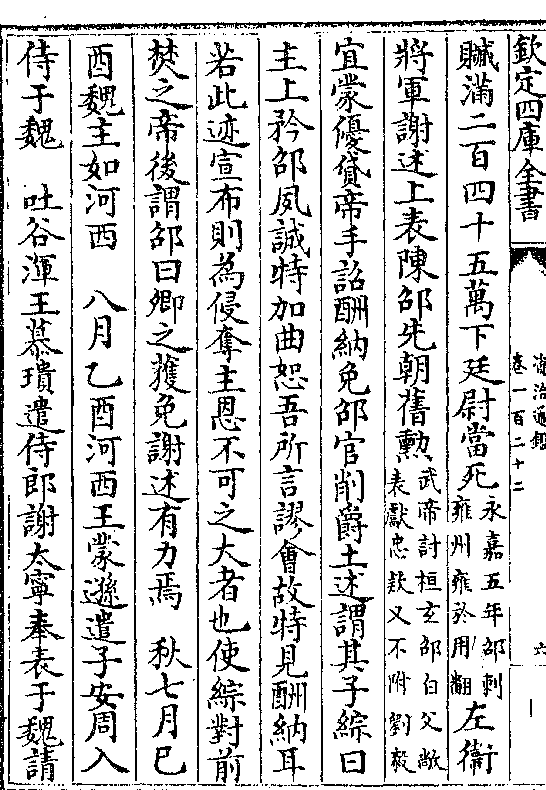 欽定四庫全書
資治通鑑
卷一百二十二
六
贓滿二百四十五萬下廷尉當死永嘉五年邵刺雍州雍於用翻左衛
將軍謝述上表陳邵先朝舊勲武帝討桓玄邵白父敞表獻忠款又不附劉毅
宜蒙優貸帝手詔酬納免邵官削爵土述謂其子綜曰
主上矜邵夙誠特加曲恕吾所言謬會故特見酬納耳
若此迹宣布則為侵奪主恩不可之大者也使綜對前
焚之帝後謂邵曰卿之獲免謝述有力焉 秋七月巳
酉魏主如河西 八月乙酉河西王蒙遜遣子安周入
侍于魏 吐谷渾王慕璝遣侍郎謝太寧奉表于魏請